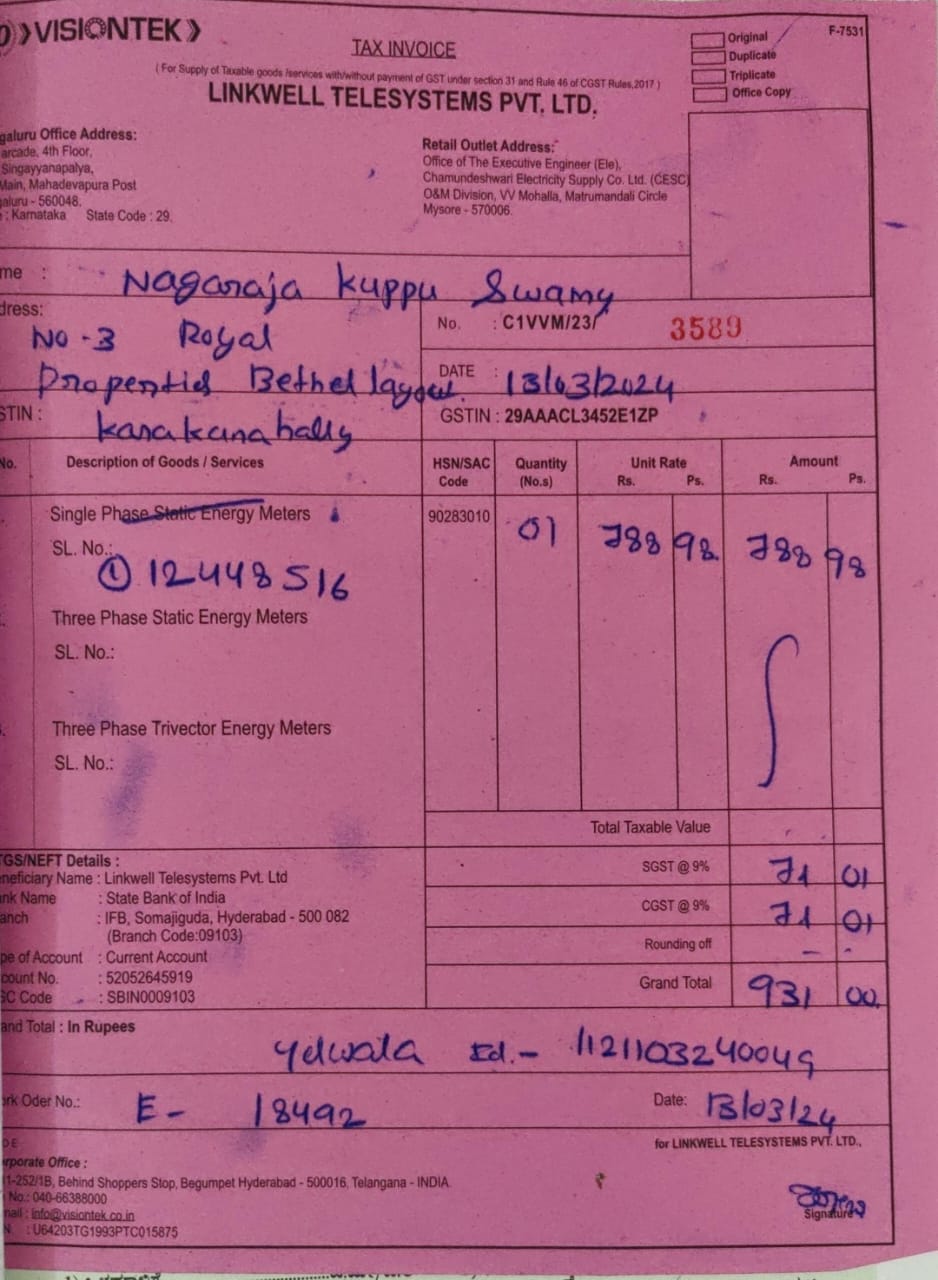 VISIONTEK
TAX INVOICE
(For Supply of Taxable goods /services with/without payment of GST under section 31 and Rule 46 of CGST Rules,2017)
LINKWELL TELESYSTEMS PVT. LTD.
Original
Duplicate
Triplicate
Office Copy
F-7531
galuru Office Address:
arcade, 4th Floor,
Singayyanapalya,
Main, Mahadevapura Post
galuru - 560048.
: Karnataka State Code : 29.
Retail Outlet Address:
Office of The Executive Engineer (Ele),
Chamundeshwari Electricity Supply Co. Ltd. (CESC)
O&M Division, VV Mohalla, Matrumandali Circle
Mysore - 570006.
me : Nagaraja Kuppu Swamy
dress:
No -3 Royal
Properties Bethel layout
STIN : Karakanahally
No. : C1VVM/23/ 3589
DATE : 13/03/2024
GSTIN : 29AAACL3452E1ZP
No. Description of Goods / Services HSN/SAC Code Quantity (No.s) Unit Rate Rs. Ps. Amount Rs. Ps.
Single Phase Static Energy Meters 90283010 01 788 98 788 98
SL. No.:
① 12448516
Three Phase Static Energy Meters
SL. No.:
Three Phase Trivector Energy Meters
SL. No.:
Total Taxable Value
SGST @ 9% 71 01
CGST @ 9% 71 01
Rounding off - -
Grand Total 931 00
TGS/NEFT Details :
neficiary Name : Linkwell Telesystems Pvt. Ltd
nk Name : State Bank of India
anch : IFB, Somajiguda, Hyderabad - 500 082
(Branch Code:09103)
pe of Account : Current Account
count No. : 52052645919
SC Code : SBIN0009103
and Total : In Rupees
Yelwala Ed.- 1121103240049
ork Oder No.: E- 18492 Date: 13/03/24
DE
for LINKWELL TELESYSTEMS PVT. LTD.,
rporate Office :
11-252/1B, Behind Shoppers Stop, Begumpet Hyderabad - 500016, Telangana - INDIA.
No.: 040-66388000
mail : info@visiontek.co.in
N. : U64203TG1993PTC015875
Signature